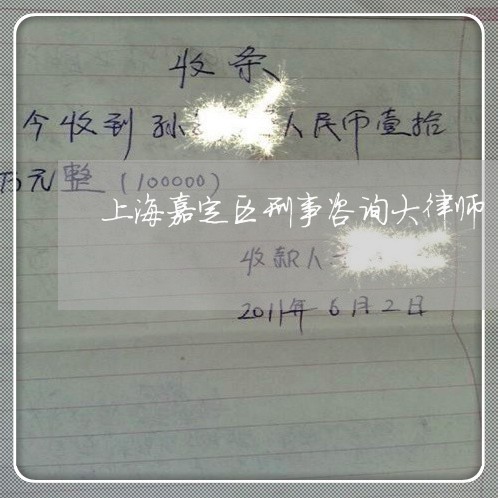 收条
今收到孙 人民币壹拾
万元整(100000)
上海嘉定区刑事咨询大律师
收款人
2011年6月2日